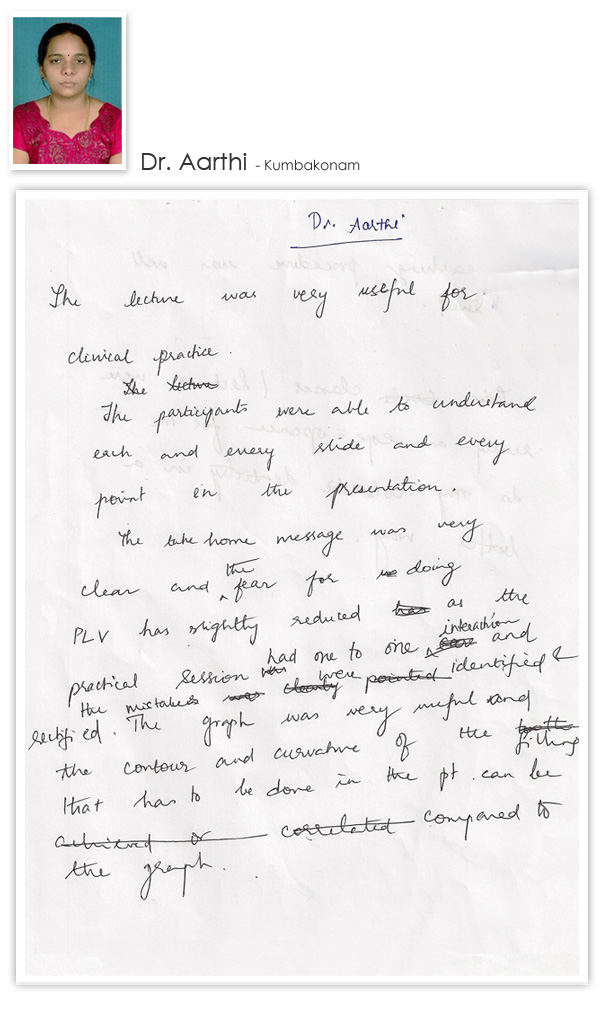 Dr. Aarthi - Kumbakonam
Dr. Aarthi
The lecture was very useful for
clinical practice.
The lecture
The participants were able to understand
each and every slide and every
point in the presentation.
The take home message was very
clear and the fear for doing
PLV has slightly reduced has as the
practical session had one to one interaction and
the mistakes was were clearly pointed identified &
rectified. The graph was very useful and
the contour and curvature of the filling
that has to be done in the pt. can be
achieved or correlated compared to
the graph.